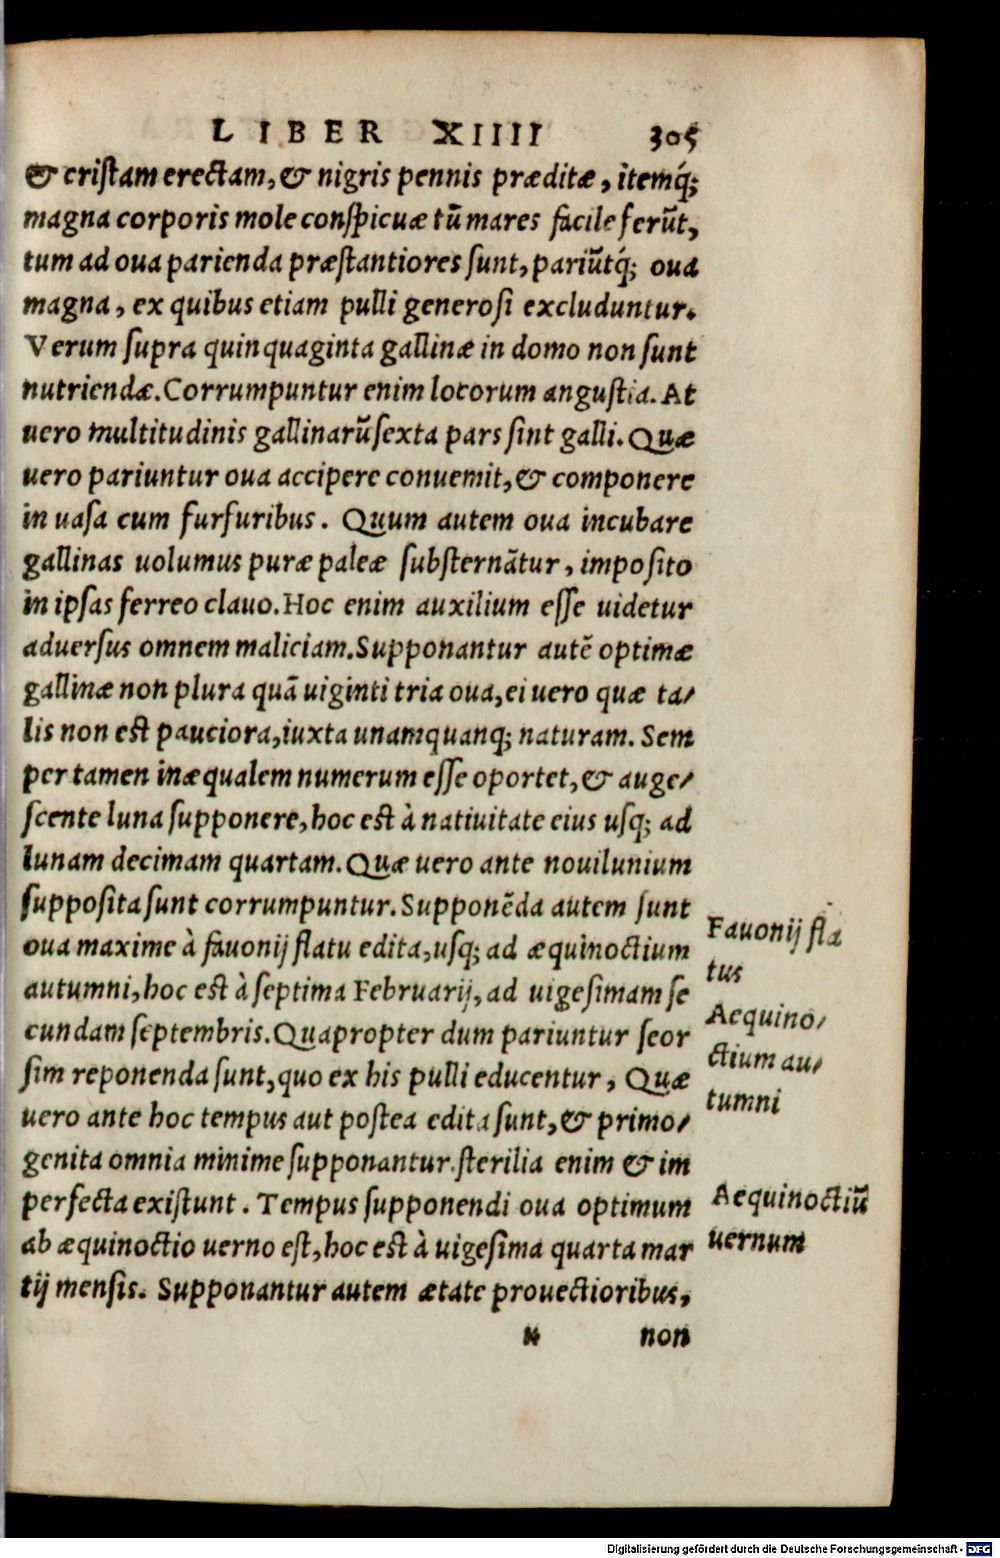 LIBER XIIII 305
& cristam erectam, & nigris pennis præditæ, itemq́;
magna corporis mole conspicuæ tũ mares facile ferũt,
tum ad oua parienda præstantiores sunt, pariũtq́; oua
magna, ex quibus etiam pulli generosi excluduntur.
Verum supra quinquaginta gallinæ in domo non sunt
nutriendæ. Corrumpuntur enim locorum angustia. At
uero multitudinis gallinarũ sexta pars sint galli. Quæ
uero pariuntur oua accipere conuemit, & componere
in uasa cum furfuribus. Quum autem oua incubare
gallinas uolumus puræ paleæ substernãtur, imposito
in ipsas ferreo clauo. Hoc enim auxilium esse uidetur
aduersus omnem maliciam. Supponantur autẽ optimæ
gallinæ non plura quã uiginti tria oua, ei uero quæ ta/
lis non est pauciora, iuxta unamquanq; naturam. Sem
per tamen inæqualem numerum esse oportet, & auge/
scente luna supponere, hoc est à natiuitate eius usq; ad
lunam decimam quartam. Quæ uero ante nouilunium
supposita sunt corrumpuntur. Supponẽda autem sunt
oua maxime à fauonij flatu edita, usq; ad æquinoctium
autumni, hoc est à septima Februarij, ad uigesimam se
cundam septembris. Quapropter dum pariuntur seor
sim reponenda sunt, quo ex his pulli educentur, Quæ
uero ante hoc tempus aut postea edita sunt, & primo/
genita omnia minime supponantur. sterilia enim & im
perfecta existunt. Tempus supponendi oua optimum
ab æquinoctio uerno est, hoc est à uigesima quarta mar
tij mensis. Supponantur autem ætate prouectioribus,
u non
Fauonij fla
tus
Aequino/
ctium au/
tumni
Aequinoctiũ
uernum
Digitalisierung gefördert durch die Deutsche Forschungsgemeinschaft - DFG